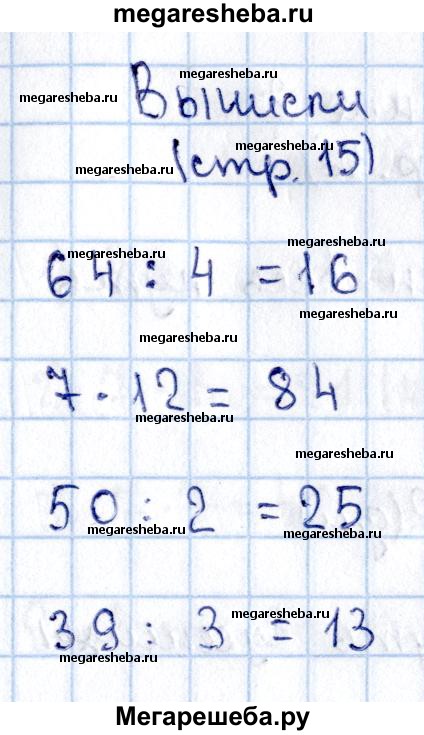 megaresheba.ru
megaresheba.ru
megaresheba.ru
Вычисли
megaresheba.ru
megaresheba.ru
(стр. 15)
megaresheba.ru
megaresheba.ru
megaresheba.ru
64 : 4 = 16
megaresheba.ru
megaresheba.ru
7 · 12 = 84
megaresheba.ru
megaresheba.ru
50 : 2 = 25
megaresheba.ru
megaresheba.ru
megaresheba.ru
39 : 3 = 13
megaresheba.ru
Мегарешеба.ру